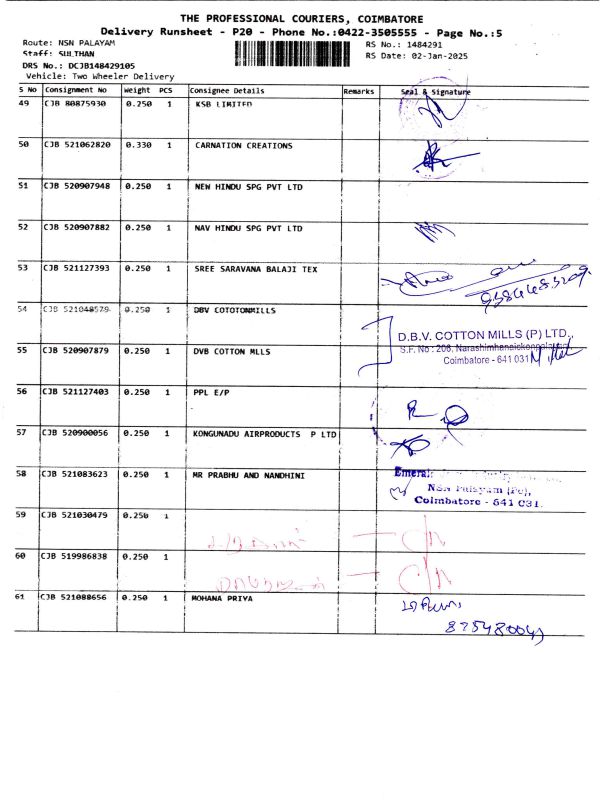 THE PROFESSIONAL COURIERS, COIMBATORE
Delivery Runsheet - P20 - Phone No.:0422-3505555 - Page No.:5
Route: NSN PALAYAM
RS No.: 1484291
Staff: SULTHAN
RS Date: 02-Jan-2025
DRS No.: DCJB148429105
Vehicle: Two Wheeler Delivery
S No Consignment No Weight PCS Consignee Details Remarks Seal & Signature
49 CJB 80875930 0.250 1 KSB LIMITED
50 CJB 521062820 0.330 1 CARNATION CREATIONS
51 CJB 520907948 0.250 1 NEW HINDU SPG PVT LTD
52 CJB 520907882 0.250 1 NAV HINDU SPG PVT LTD
53 CJB 521127393 0.250 1 SREE SARAVANA BALAJI TEX
54 CJB 521048579 0.250 1 DBV COTOTONMILLS
D.B.V. COTTON MILLS (P) LTD.,
S.F. No : 206, Narashimhanaickenpalayam
Coimbatore - 641 031
55 CJB 520907879 0.250 1 DVB COTTON MLLS
56 CJB 521127403 0.250 1 PPL E/P
57 CJB 520900056 0.250 1 KONGUNADU AIRPRODUCTS P LTD
58 CJB 521083623 0.250 1 MR PRABHU AND NANDHINI
NSN Palayam (Po),
Coimbatore - 641 031.
59 CJB 521030479 0.250 1
60 CJB 519986838 0.250 1
61 CJB 521088656 0.250 1 MOHANA PRIYA